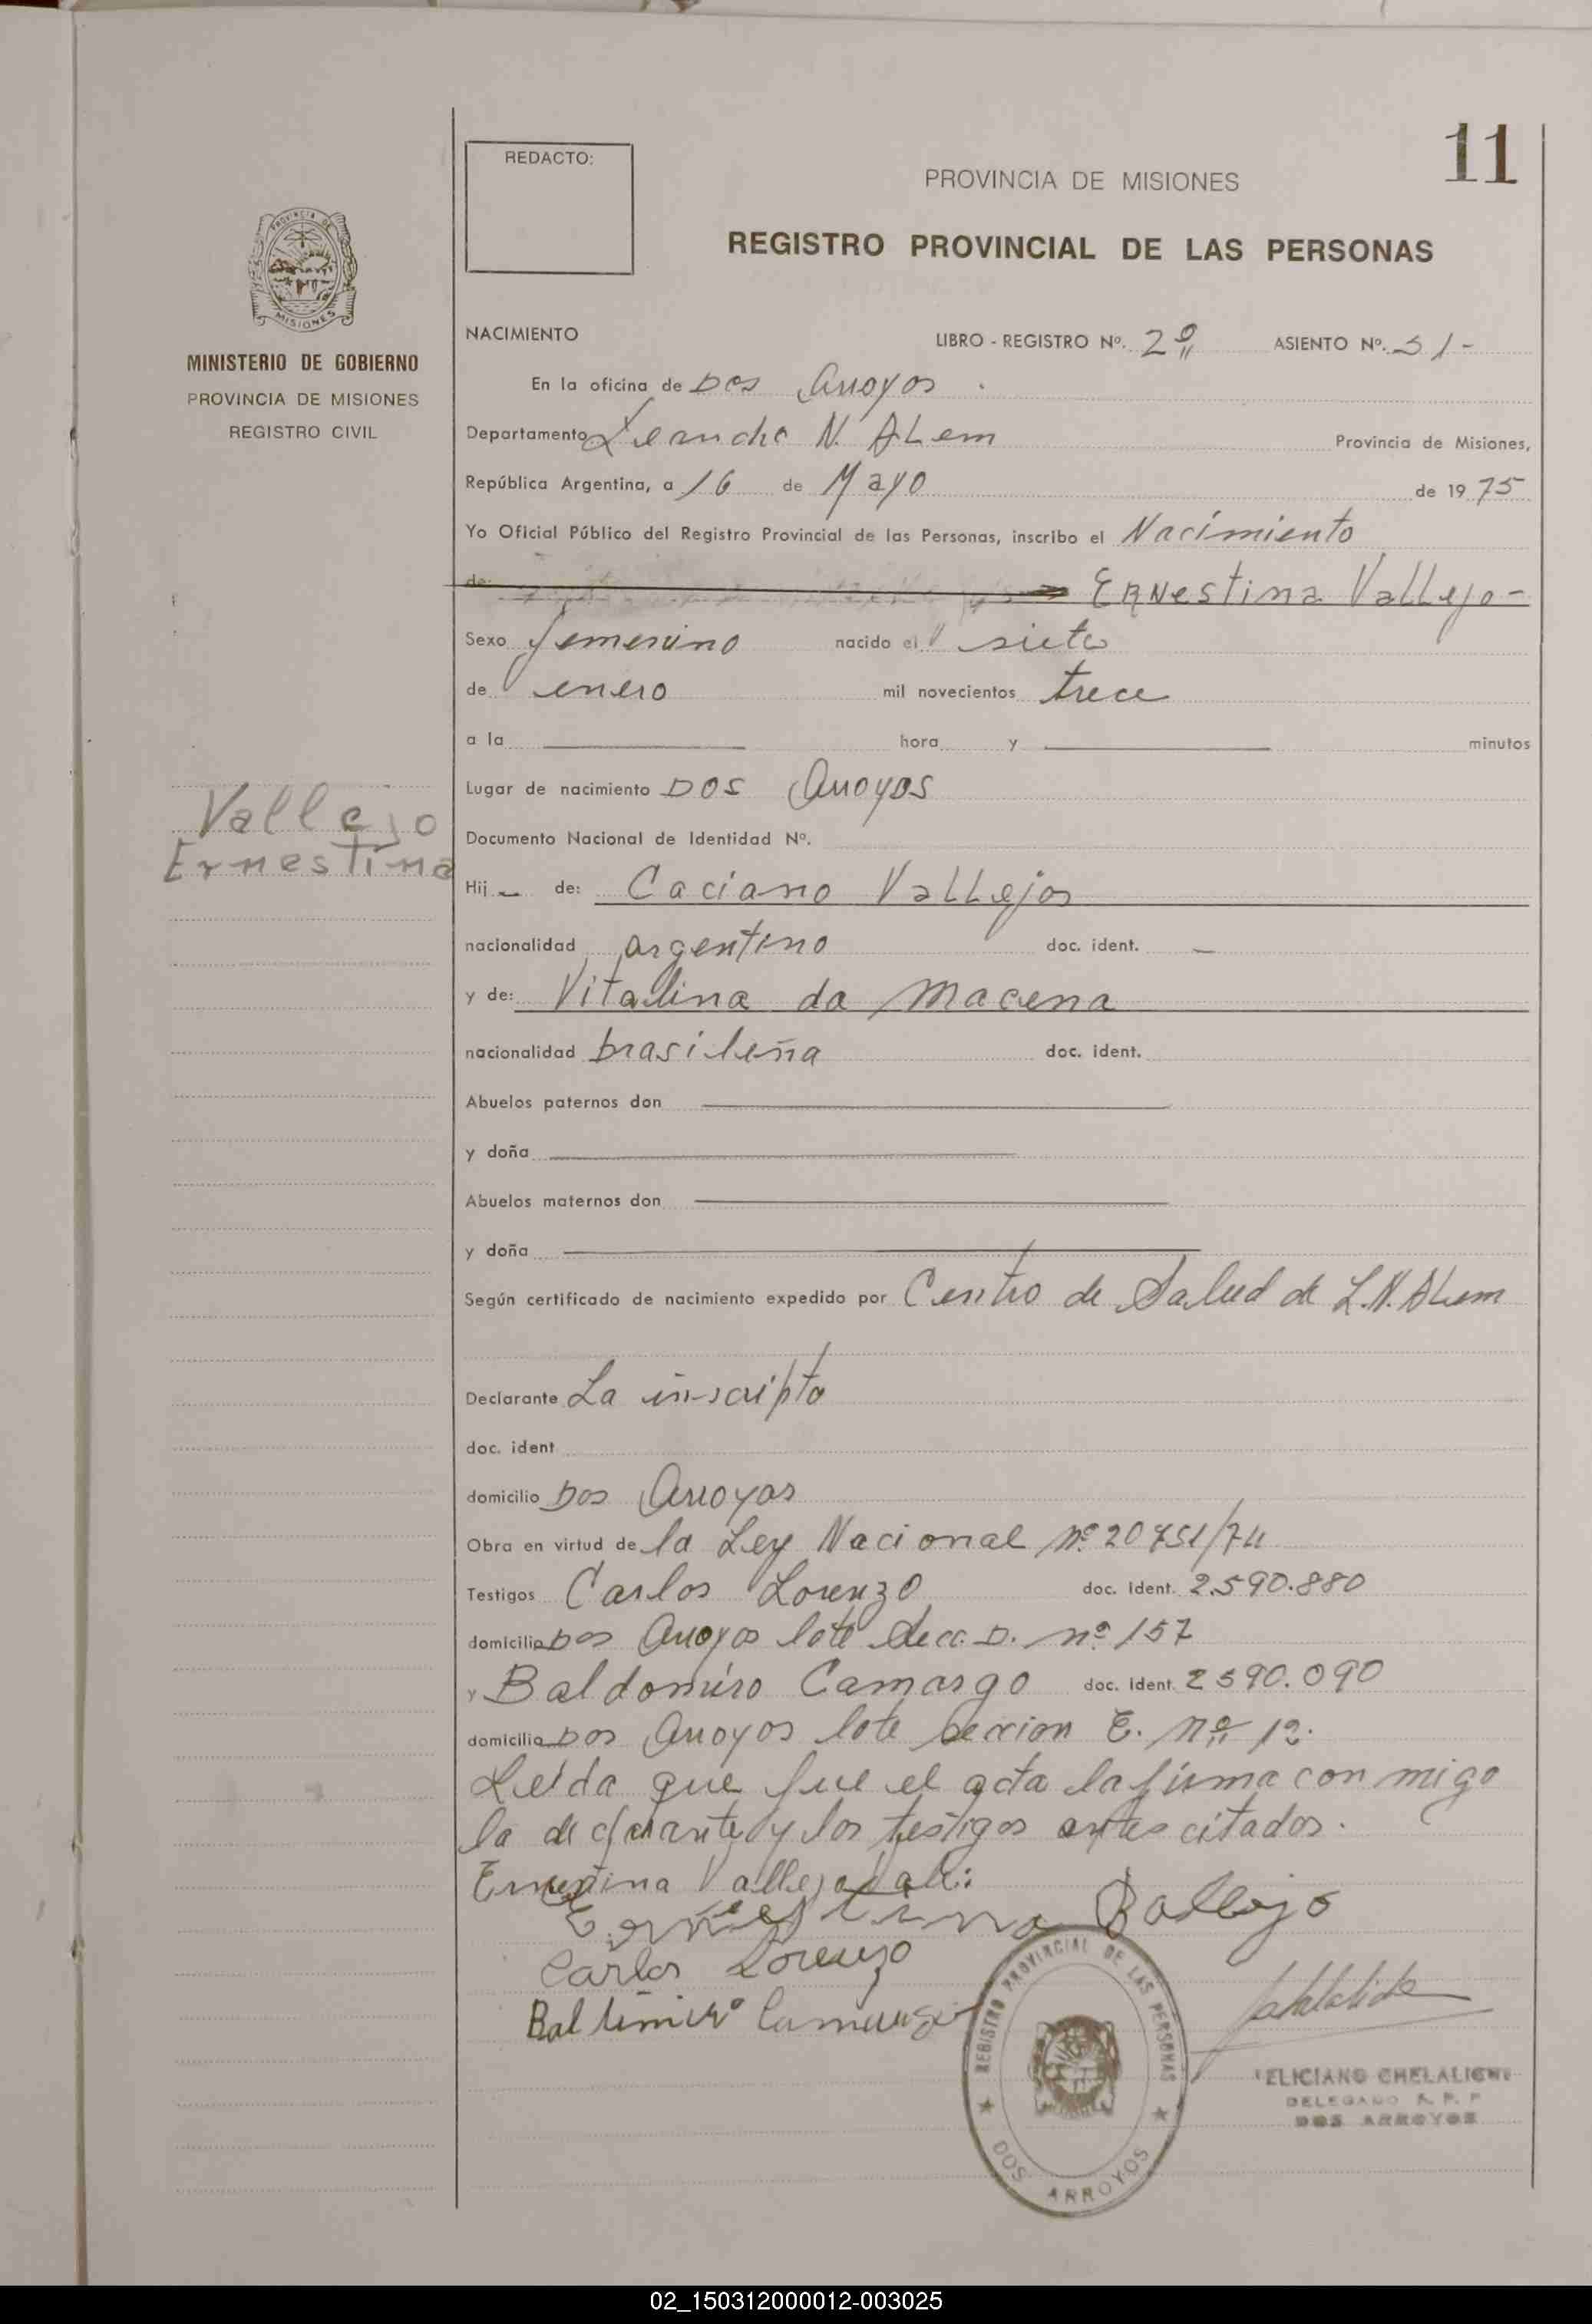 11
REDACTO:
PROVINCIA DE MISIONES
REGISTRO PROVINCIAL DE LAS PERSONAS
PROVINCIA DE
MISIONES
MINISTERIO DE GOBIERNO
PROVINCIA DE MISIONES
REGISTRO CIVIL
NACIMIENTO LIBRO - REGISTRO Nº. 2º ASIENTO Nº. 51-
En la oficina de Dos Arroyos.
Departamento Leandro N. ALem Provincia de Misiones,
República Argentina, a 16 de Mayo de 1975
Yo Oficial Público del Registro Provincial de las Personas, inscribo el Nacimiento
de: Ernestina Vallejo-
Sexo femenino nacido el siete
de enero mil novecientos trece
a la hora y minutos
Lugar de nacimiento Dos Arroyos
Vallejo
Ernestina
Documento Nacional de Identidad Nº.
Hij de: Caciano Vallejos
nacionalidad argentino doc. ident. —
y de: Vitalina da Macena
nacionalidad brasileña doc. ident.
Abuelos paternos don
y doña
Abuelos maternos don
y doña
Según certificado de nacimiento expedido por Centro de Salud de L.N.ALem
Declarante La inscripta
doc. ident
domicilio Dos Arroyos
Obra en virtud de la Ley Nacional nº 20751/74
Testigos Carlos Lorenzo doc. ident. 2.590.880
domicilio Dos Arroyos lote Secc. D. nº 157
y Baldomiro Camargo doc. ident. 2590.090
domicilio Dos Arroyos lote seccion E. nº 12.
Leída que fue el acta la firma con migo
la declarante y los testigos antes citados.
Ernestina Vallejo
Ernestina Ballejo
Carlos Lorenzo
REGISTRO PROVINCIAL DE LAS PERSONAS
DOS ARROYOS
FELICIANO CHELALICHE
DELEGADO R. P. P
DOS ARROYOS
02_150312000012-003025